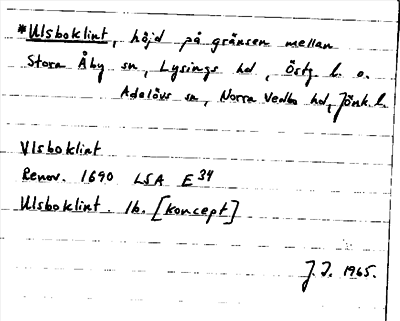 *Ulsboklint, höjd på gränsen mellan
Stora Åby sn, Lysings hd, Östg. l. o.
Adelövs sn, Norra Vedbo hd, Jönk. l.
Vlsboklint
Renov. 1690 LSA E 34
Ulsboklint. Ib. [koncept]
J. I. 1965.